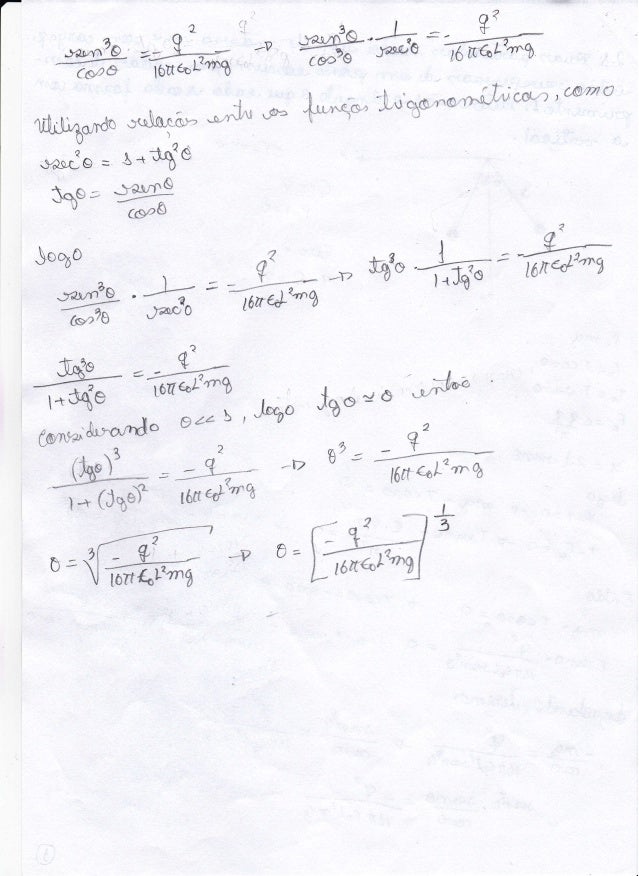 sen³θ/cosθ = - q²/16πε₀L²mg → sen³θ/cos³θ · 1/sec²θ = - q²/16πε₀L²mg
Utilizando relações entre as funções trigonométricas, como
sec²θ = 1 + tg²θ
tgθ = senθ/cosθ
logo
sen³θ/cos³θ · 1/sec²θ = - q²/16πε₀L²mg → tg³θ · 1/1+tg²θ = - q²/16πε₀L²mg
tg³θ/1+tg²θ = - q²/16πε₀L²mg
Considerando θ<< 1, logo tgθ ≃ θ então.
(tgθ)³/1+(tgθ)² = - q²/16πε₀L²mg → θ³ = - q²/16πε₀L²mg
θ = ∛(- q²/16πε₀L²mg) → θ = [- q²/16πε₀L²mg]^(1/3)